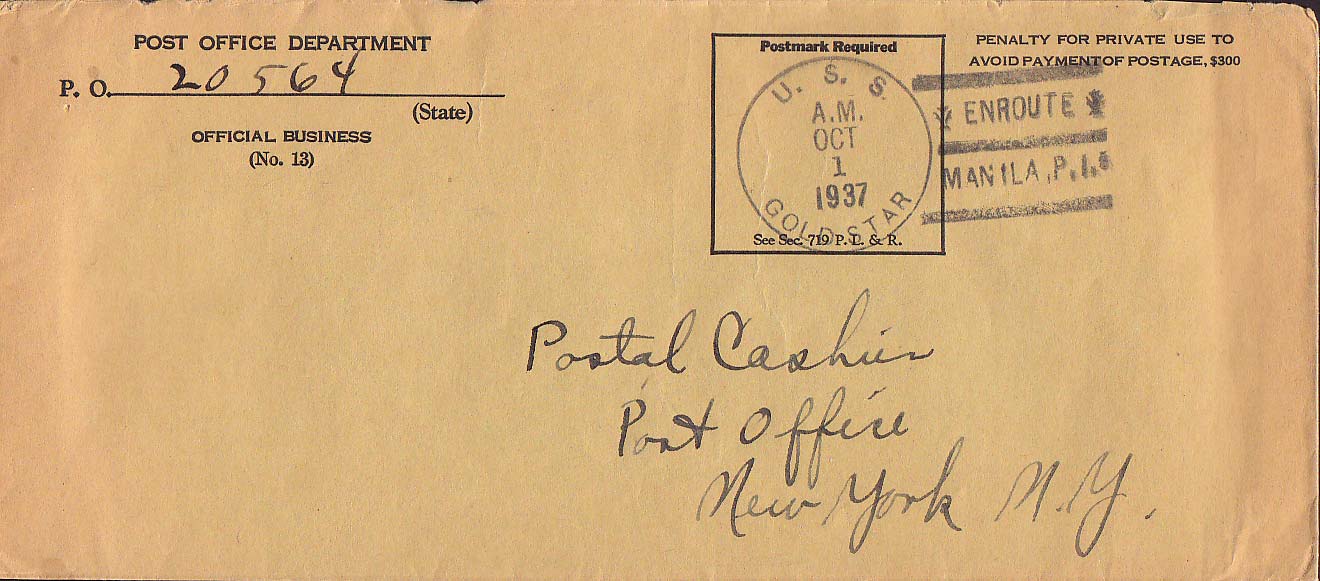 POST OFFICE DEPARTMENT
P. O. 20564
(State)
OFFICIAL BUSINESS
(No. 13)
Postmark Required
U. S. S.
A.M.
OCT
1
1937
GOLD STAR
See Sec. 719 P. L. & R.
PENALTY FOR PRIVATE USE TO
AVOID PAYMENT OF POSTAGE, $300
ENROUTE
MANILA, P.I.
Postal Cashier
Post Office
New York N.Y.